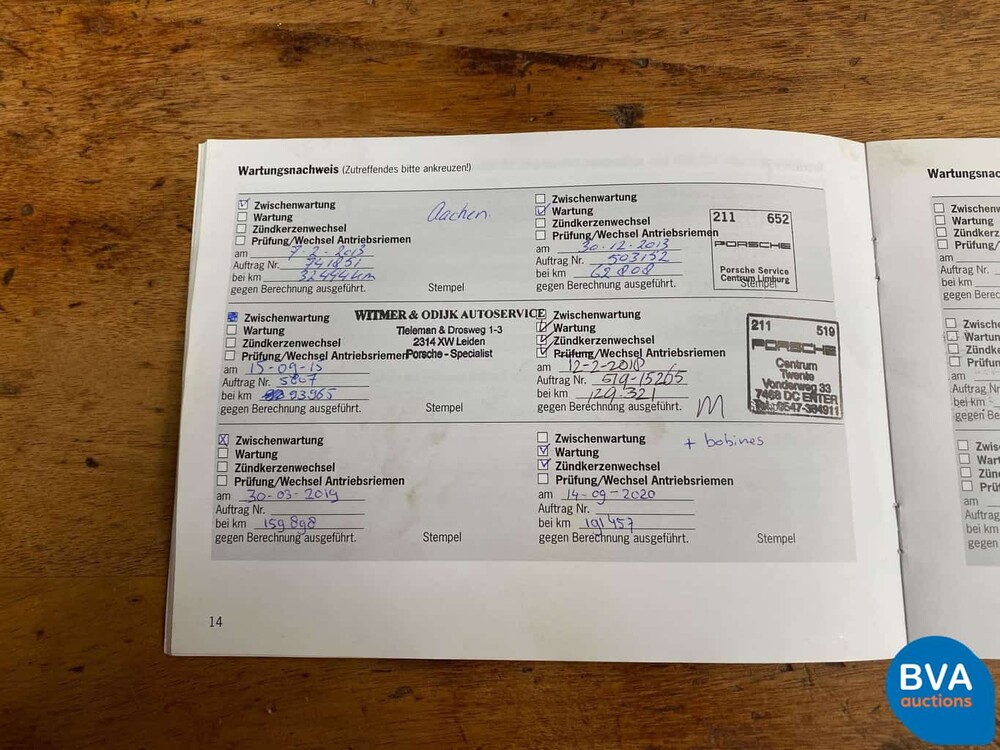 Wartungsnachweis (Zutreffendes bitte ankreuzen!)
Zwischenwartung
Aachen
Wartung
Zündkerzenwechsel
Prüfung/Wechsel Antriebsriemen
am 7-2-2013
Auftrag Nr. 741851
bei km 32444km
gegen Berechnung ausgeführt. Stempel
Zwischenwartung
Wartung
Zündkerzenwechsel
Prüfung/Wechsel Antriebsriemen
am 30-12-2013
Auftrag Nr. 503152
bei km 62808
gegen Berechnung ausgeführt. Stempel
211 652
PORSCHE
Porsche Service
Centrum Limburg
Zwischenwartung
Wartung
Zündkerzenwechsel
Prüfung/Wechsel Antriebsriemen
am 15-09-15
Auftrag Nr.
bei km 93965
gegen Berechnung ausgeführt. Stempel
WITMER & ODIJK AUTOSERVICE
Tieleman & Drosweg 1-3
2314 XW Leiden
Porsche - Specialist
Zwischenwartung
Wartung
Zündkerzenwechsel
Prüfung/Wechsel Antriebsriemen
am 12-2-2018
Auftrag Nr. 519-15265
bei km 129.321
gegen Berechnung ausgeführt.
211 519
PORSCHE
Centrum
Twente
Vonderweg 33
7468 DC ENTER
Tel.: 0547-384911
Zwischenwartung
Wartung
Zündkerzenwechsel
Prüfung/Wechsel Antriebsriemen
am 30-03-2019
Auftrag Nr.
bei km 159.898
gegen Berechnung ausgeführt. Stempel
Zwischenwartung
+ bobines
Wartung
Zündkerzenwechsel
Prüfung/Wechsel Antriebsriemen
am 14-09-2020
Auftrag Nr.
bei km 191457
gegen Berechnung ausgeführt. Stempel
14
Wartungsnac
Zwischenw
Wartung
Zündkerz
Prüfung/
am
Auftrag Nr.
bei km
gegen Berech
Zwische
Wartun
Zündke
Prüfun
am
Auftrag N
bei km
gegen Be
Zwis
Wart
Zünd
Prü
am
Auftrag
bei km
gegen
BVA
auctions